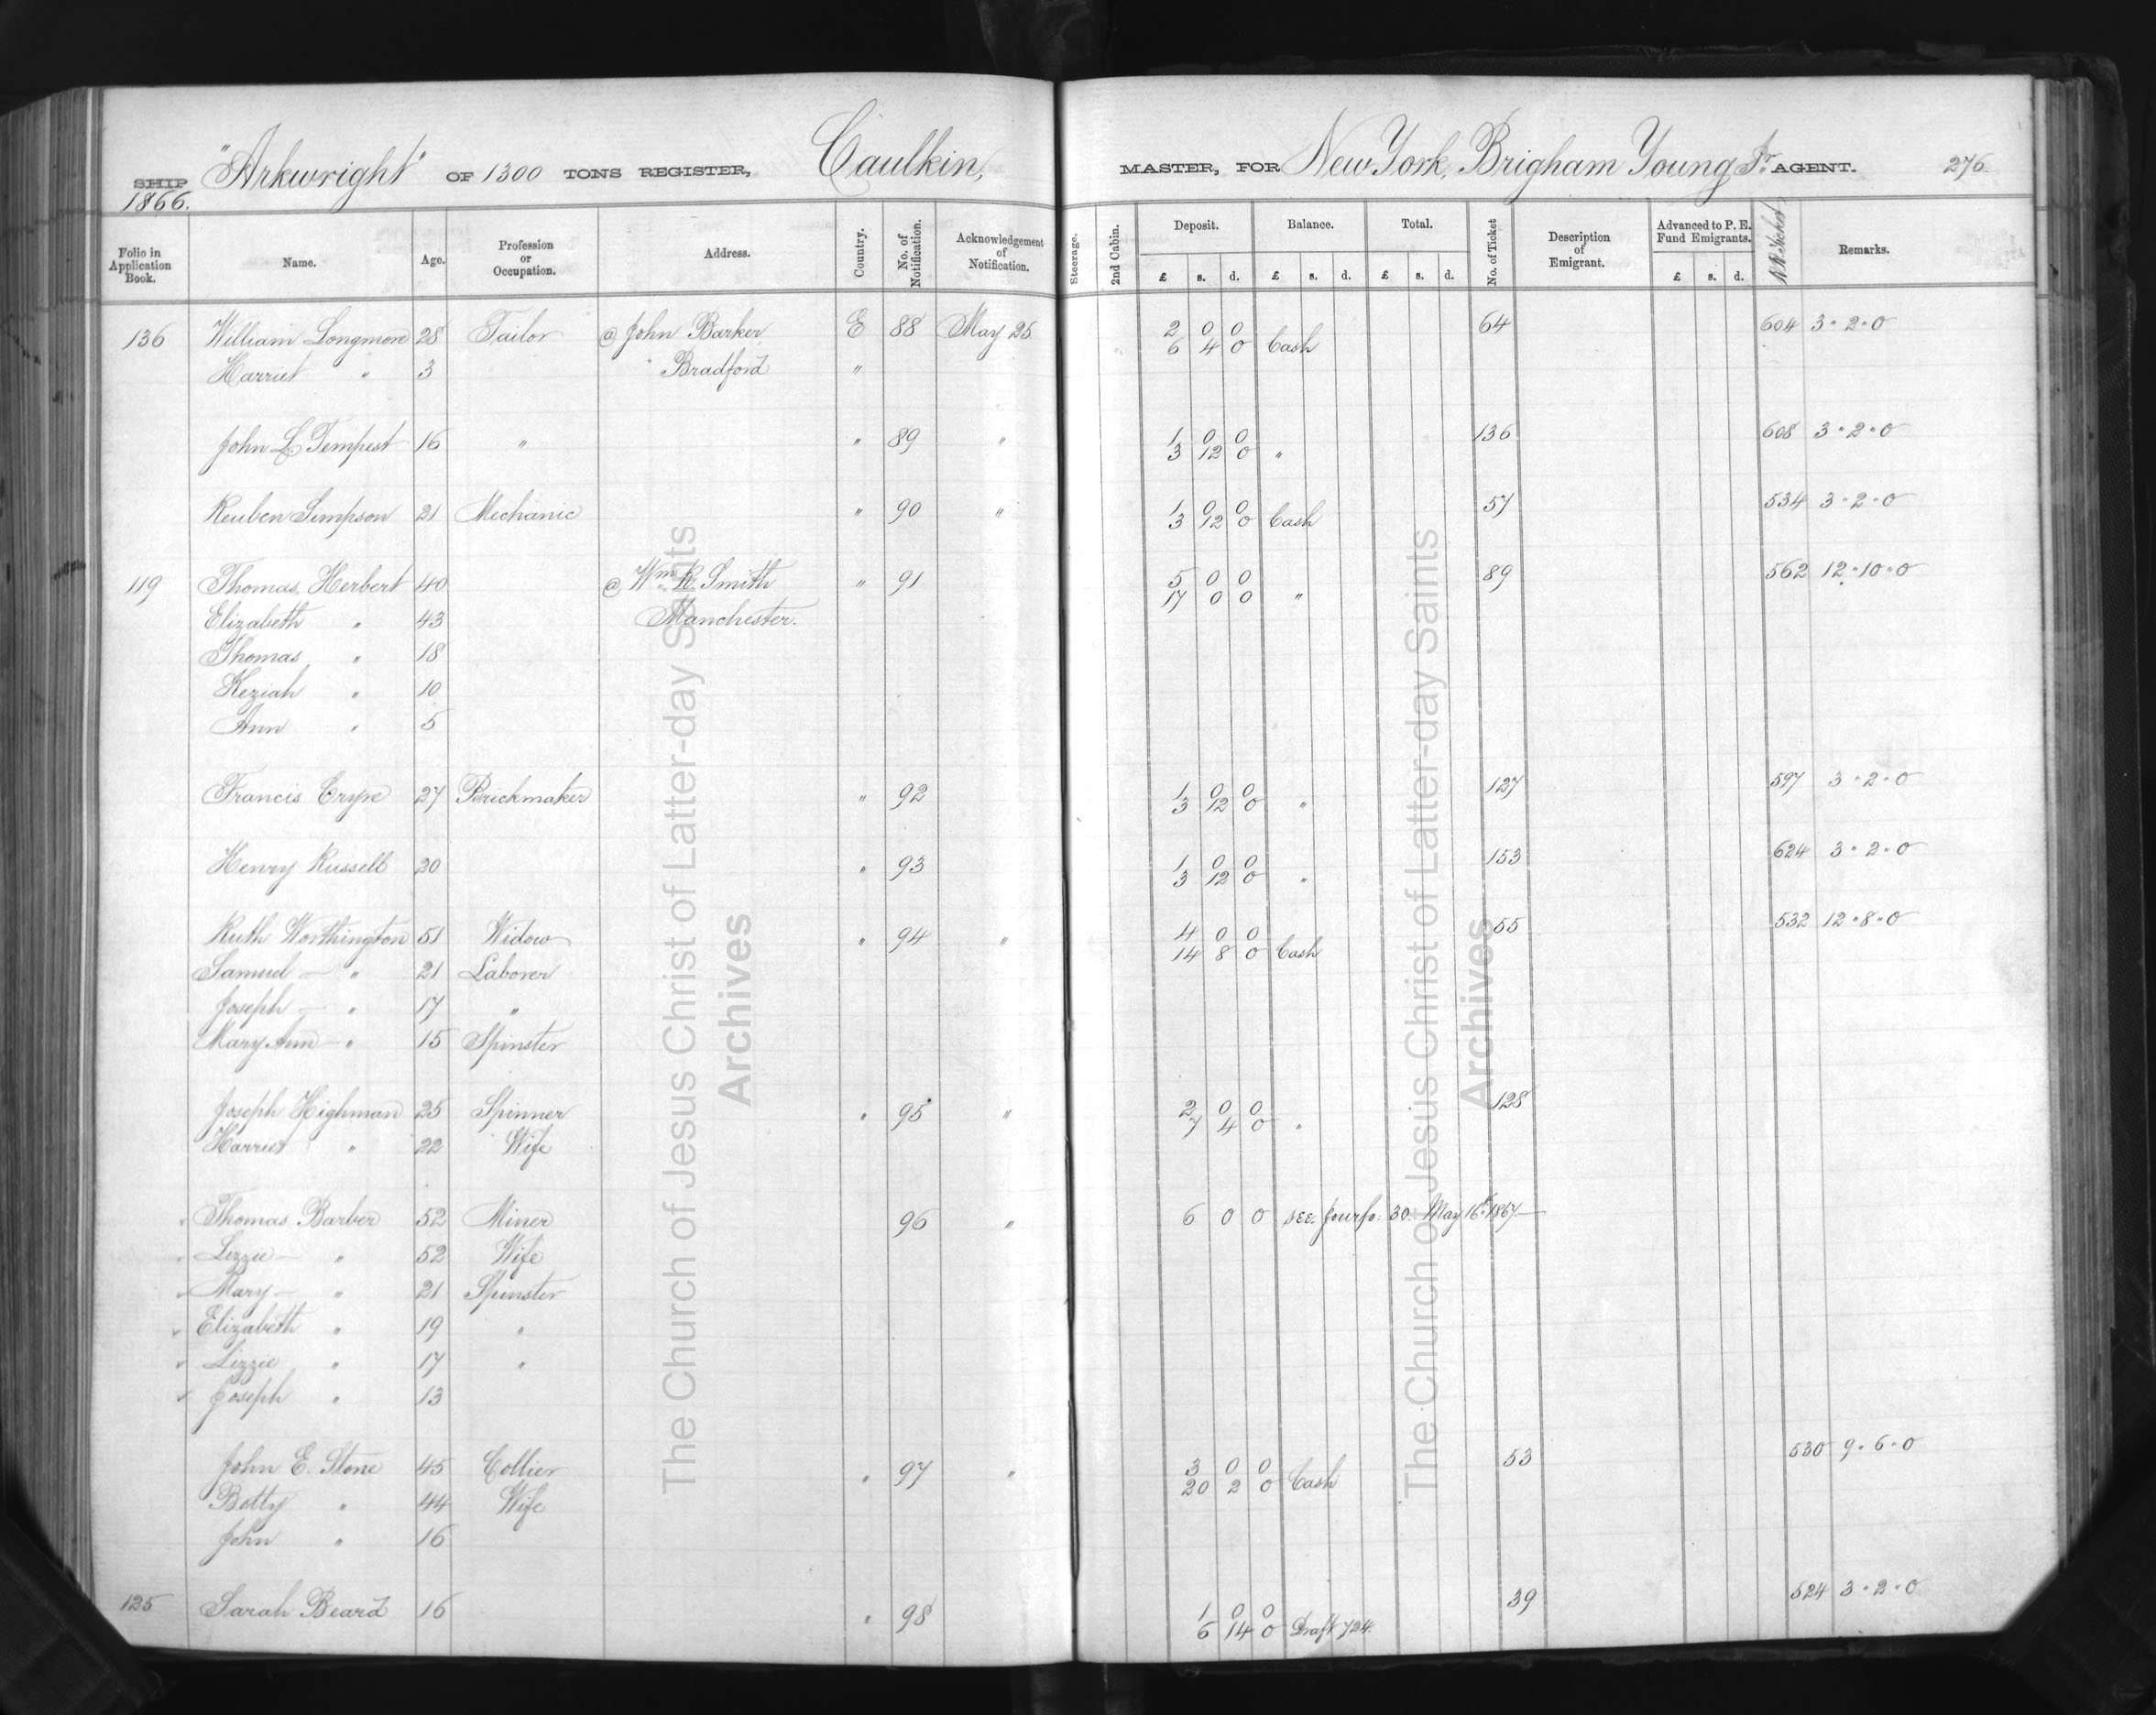 SHIP "Arkwright" OF 1300 TONS REGISTER, Caulkin, MASTER, FOR New York, Brigham Young Jr. AGENT. 276
1866.
Folio in Application Book. Name. Age. Profession or Occupation. Address. Country. No. of Notification. Acknowledgement of Notification. Steerage. 2nd Cabin. Deposit. Balance. Total. No. of Ticket Description of Emigrant. Advanced to P. E. Fund Emigrants. Remarks.
£ s. d. £ s. d. £ s. d. £ s. d.
136 William Longmore 28 Tailor @ John Barker E 88 May 25 2 0 0 64 604 3 " 2 " 0
6 4 0 Cash
Harriet " 3 Bradford "
John L. Tempest 16 " " 89 " 1 0 0 136 608 3 " 2 " 0
3 12 0 "
Reuben Simpson 21 Mechanic " 90 " 1 0 0 57 534 3 " 2 " 0
3 12 0 Cash
119 Thomas Herbert 40 @ Wm R. Smith " 91 5 0 0 89 562 12 " 10 " 0
17 0 0 "
Elizabeth " 43 Manchester.
Thomas " 18
Keziah " 10
Ann " 5
Francis Crype 27 Brickmaker " 92 1 0 0 127 597 3 " 2 " 0
3 12 0 "
Henry Russell 20 " 93 1 0 0 153 624 3 " 2 " 0
3 12 0 "
Ruth Worthington 51 Widow " 94 " 4 0 0 55 532 12 " 8 " 0
14 8 0 Cash
Samuel — " 21 Laborer
Joseph — " 17 "
Mary Ann — " 15 Spinster
Joseph Highman 25 Spinner " 95 " 2 0 0 128
7 4 0 "
Harriet " 22 Wife
Thomas Barber 52 Miner 96 " 6 0 0 see Jour fo. 30. May 16th 1867. —
Lizzie — " 52 Wife
Mary — " 21 Spinster
Elizabeth " 19 "
Lizzie " 17 "
Joseph " 13
John E. Stone 45 Collier " 97 " 3 0 0 53 530 9 " 6 " 0
20 2 0 Cash
Betty " 44 Wife
John " 16
125 Sarah Beard 16 " 98 1 0 0 39 524 3 " 2 " 0
6 14 0 Draft 724.
The Church of Jesus Christ of Latter-day Saints
Archives
The Church of Jesus Christ of Latter-day Saints
Archives